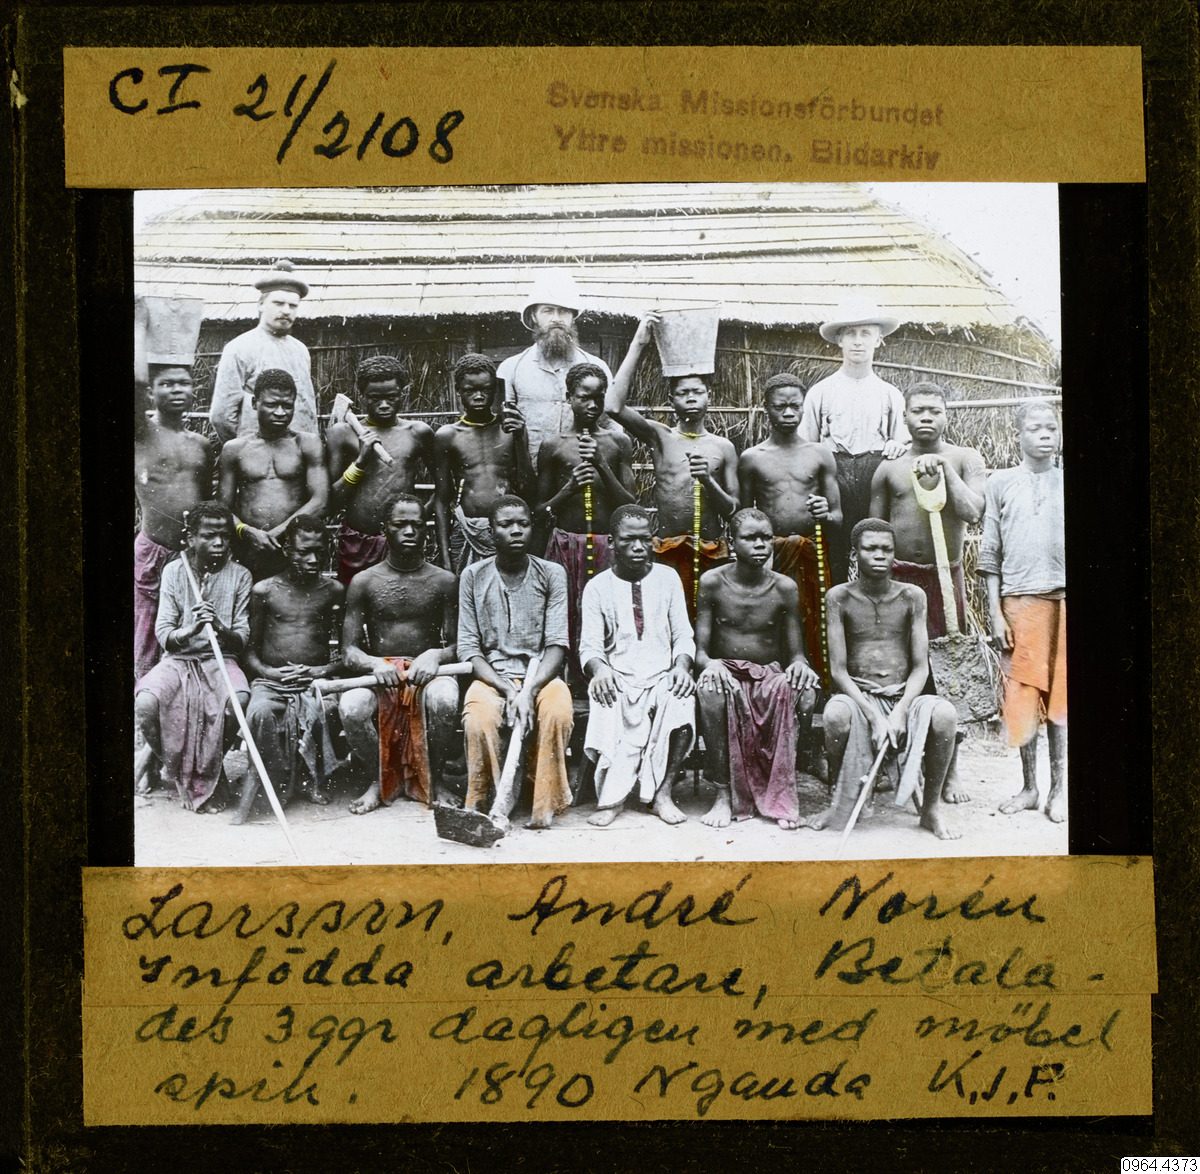 CI 21/2108
Svenska Missionsförbundet
Yttre missionen. Bildarkiv
Larsson, André Norén
Infödda arbetare, Betala-
des 3 ggr dagligen med möbel
spik. 1890 Nganda K.J.F.
0964.4373